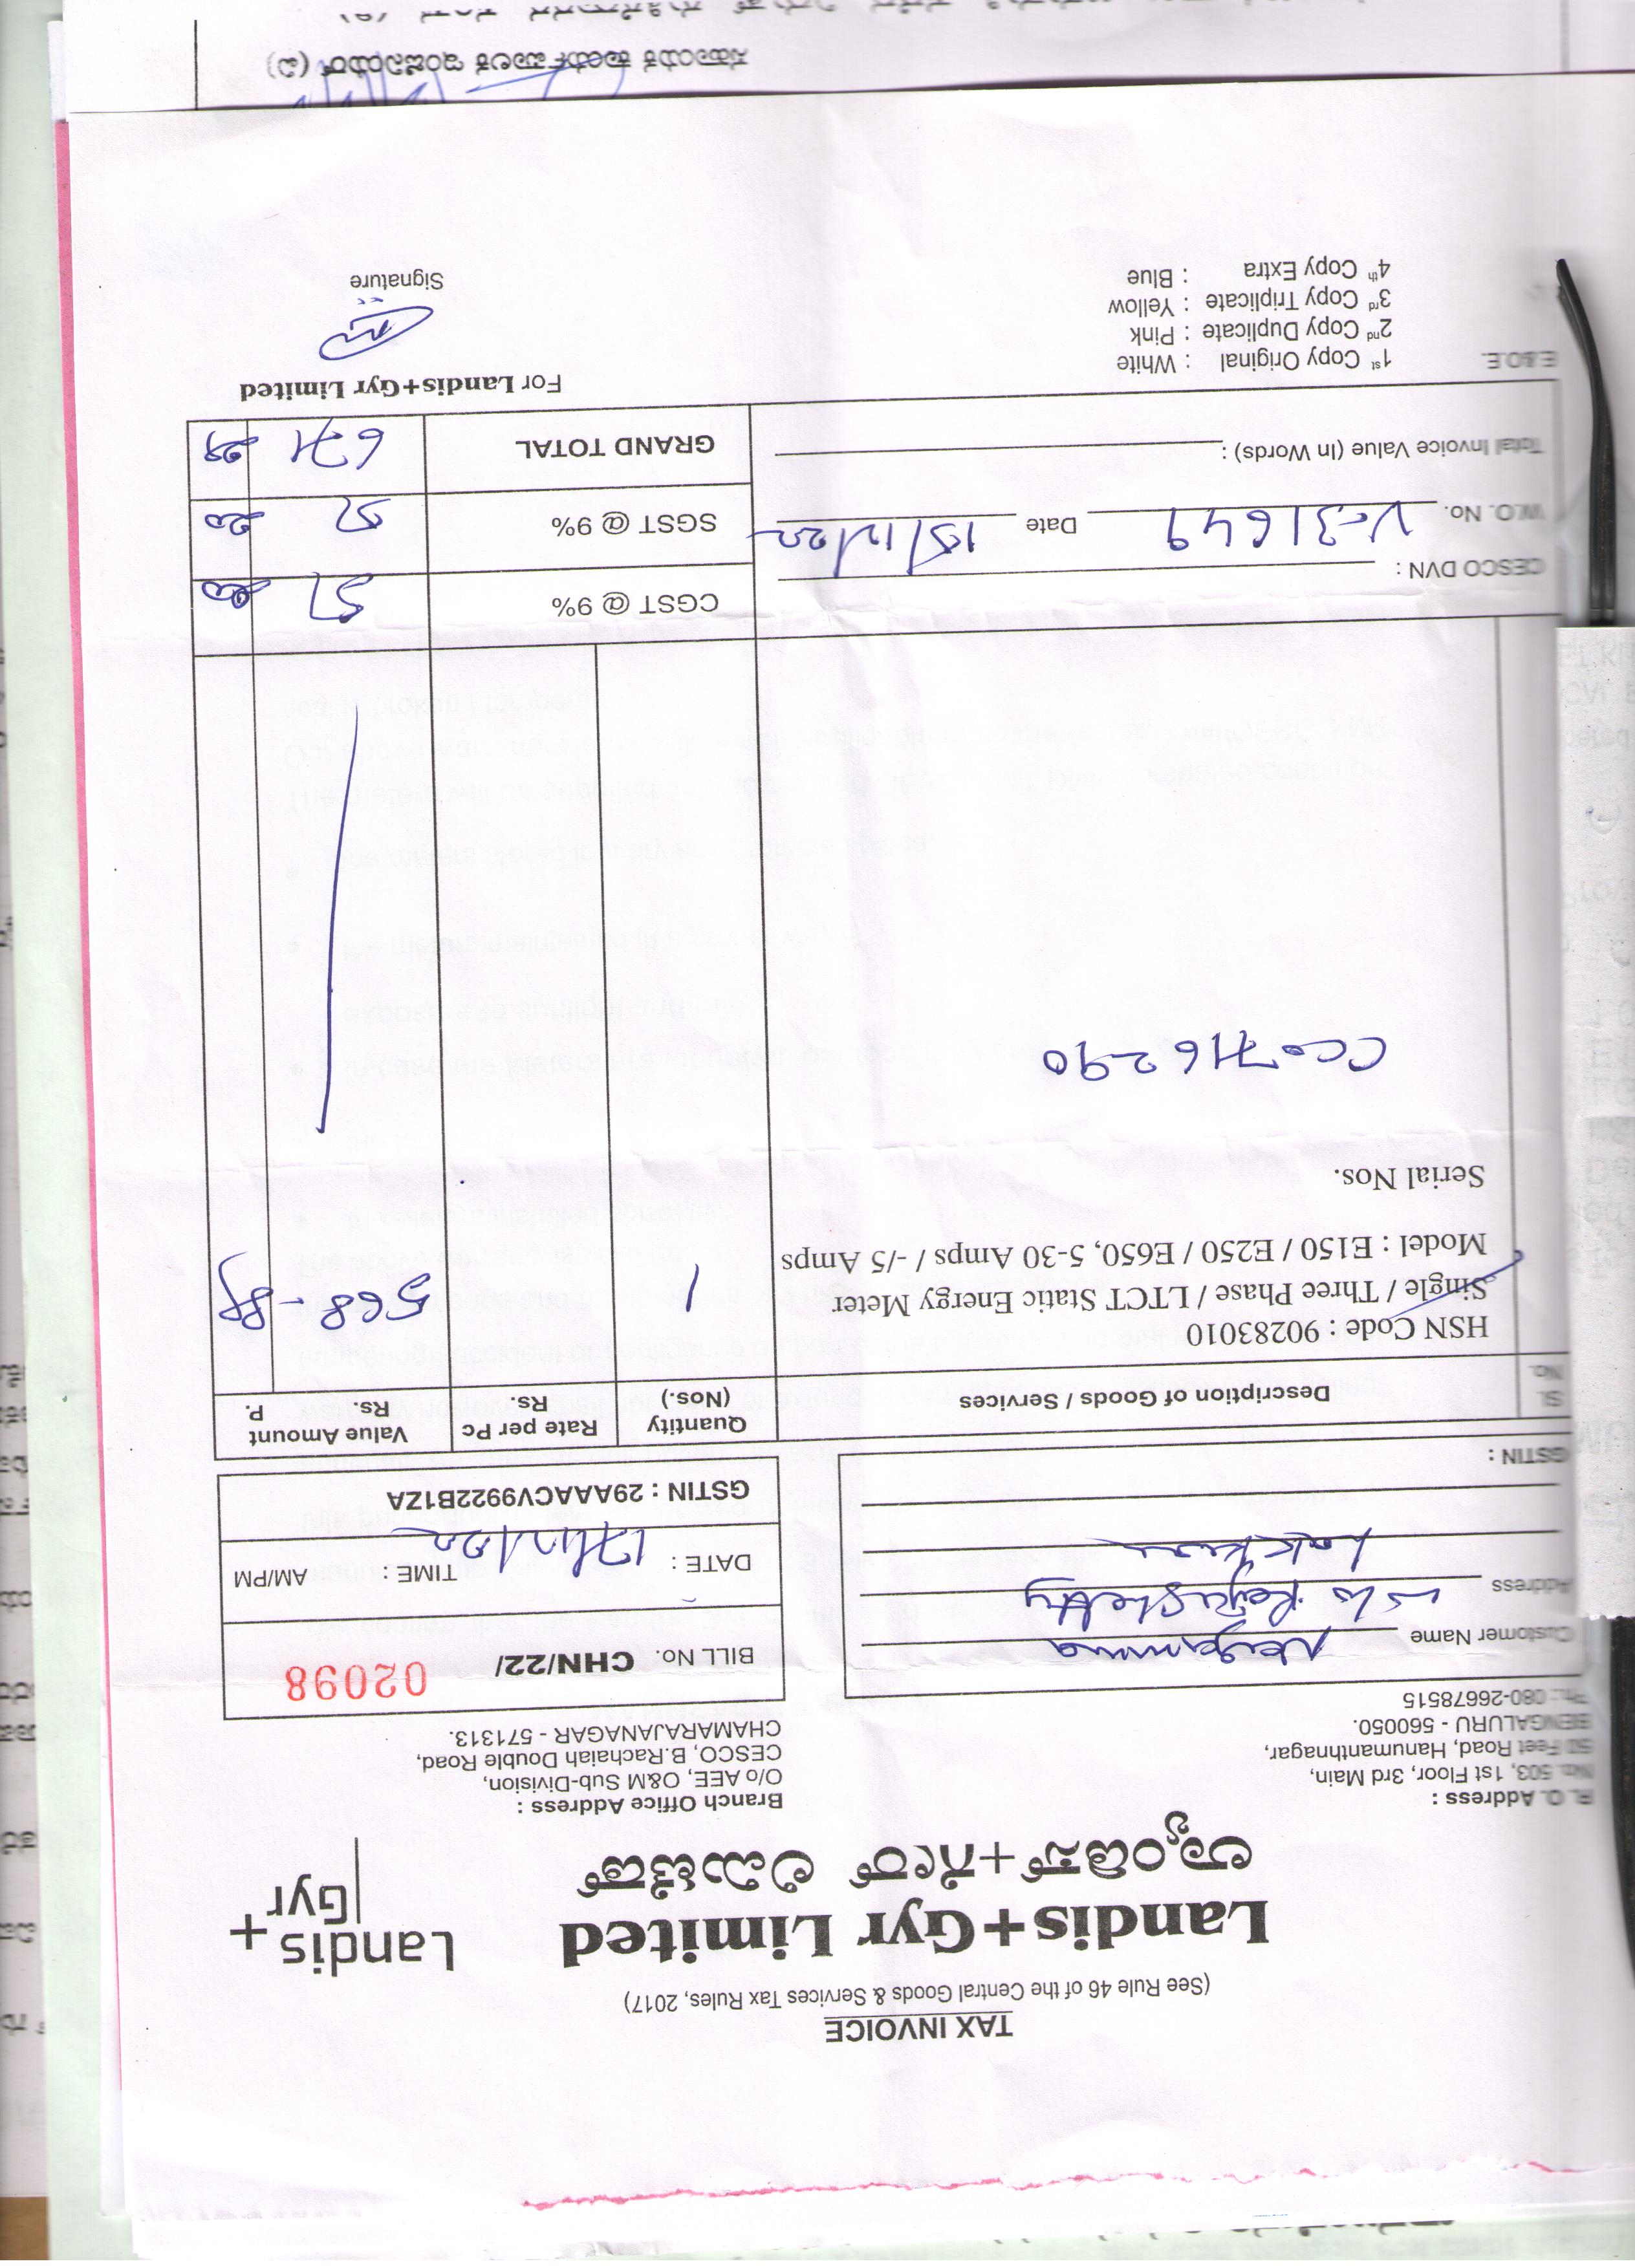 TAX INVOICE
(See Rule 46 of the Central Goods & Services Tax Rules, 2017)
Landis+Gyr Limited
ಲ್ಯಾಂಡಿಸ್+ಗೇರ್ ಲಿಮಿಟೆಡ್
Landis
+
Gyr
R. O. Address :
No. 503, 1st Floor, 3rd Main,
50 Feet Road, Hanumanthnagar,
BENGALURU - 560050.
Ph.: 080-26678515
Branch Office Address :
O/o AEE, O&M Sub-Division,
CESCO, B.Rachaiah Double Road,
CHAMARAJANAGAR - 571313.
Customer Name
Address
GSTIN :
BILL No. CHN/22/ 02098
DATE : 17/12/22 TIME : AM/PM
GSTIN : 29AAACV9922B1ZA
Sl. No. Description of Goods / Services Quantity (Nos.) Rate per Pc Rs. Value Amount Rs. P.
HSN Code : 90283010
Single / Three Phase / LTCT Static Energy Meter 1 568-89
Model : E150 / E250 / E650, 5-30 Amps / -/5 Amps
Serial Nos.
CC0716290
CESCO DVN :
CGST @ 9% 51 20
W.O. No. V-31649 Date 15/12/22
SGST @ 9% 51 20
Total Invoice Value (In Words) :
GRAND TOTAL 671 29
E.&O.E.
1st Copy Original : White
2nd Copy Duplicate : Pink
3rd Copy Triplicate : Yellow
4th Copy Extra : Blue
For Landis+Gyr Limited
Signature
ಸಹಾಯಕ ಕಾರ್ಯಪಾಲಕ ಇಂಜಿನಿಯರ್ (ವಿ)